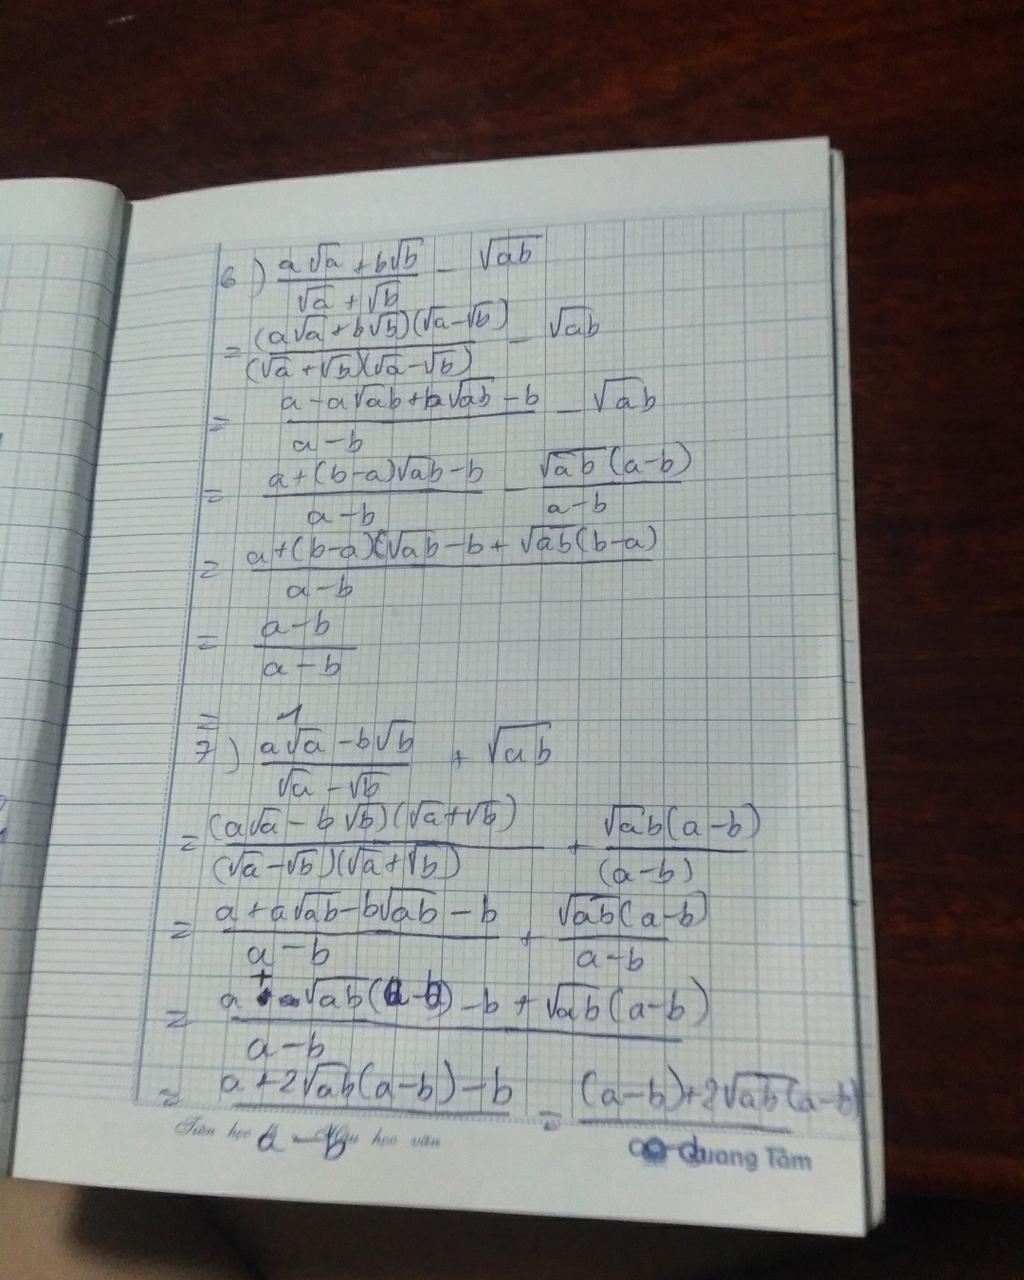 6) (a√a + b√b)/(√a + √b) - √ab
= (a√a + b√b)(√a - √b)/(√a + √b)(√a - √b) - √ab
= (a - a√ab + b√ab - b)/(a - b) - √ab
= (a + (b - a)√ab - b)/(a - b) - √ab(a - b)/(a - b)
= (a + (b - a)(√ab - b + √ab(b - a))/(a - b)
= (a - b)/(a - b)
= 1
7) (a√a - b√b)/(√a - √b) + √ab
= (a√a - b√b)(√a + √b)/(√a - √b)(√a + √b) + √ab(a - b)/(a - b)
= (a + a√ab - b√ab - b)/(a - b) + √ab(a - b)/(a - b)
= (a + √ab(a - b) - b + √ab(a - b))/(a - b)
= (a + 2√ab(a - b) - b)/(a - b) = (a - b) + 2√ab(a - b)
Tiên học học văn
Quang Tâm